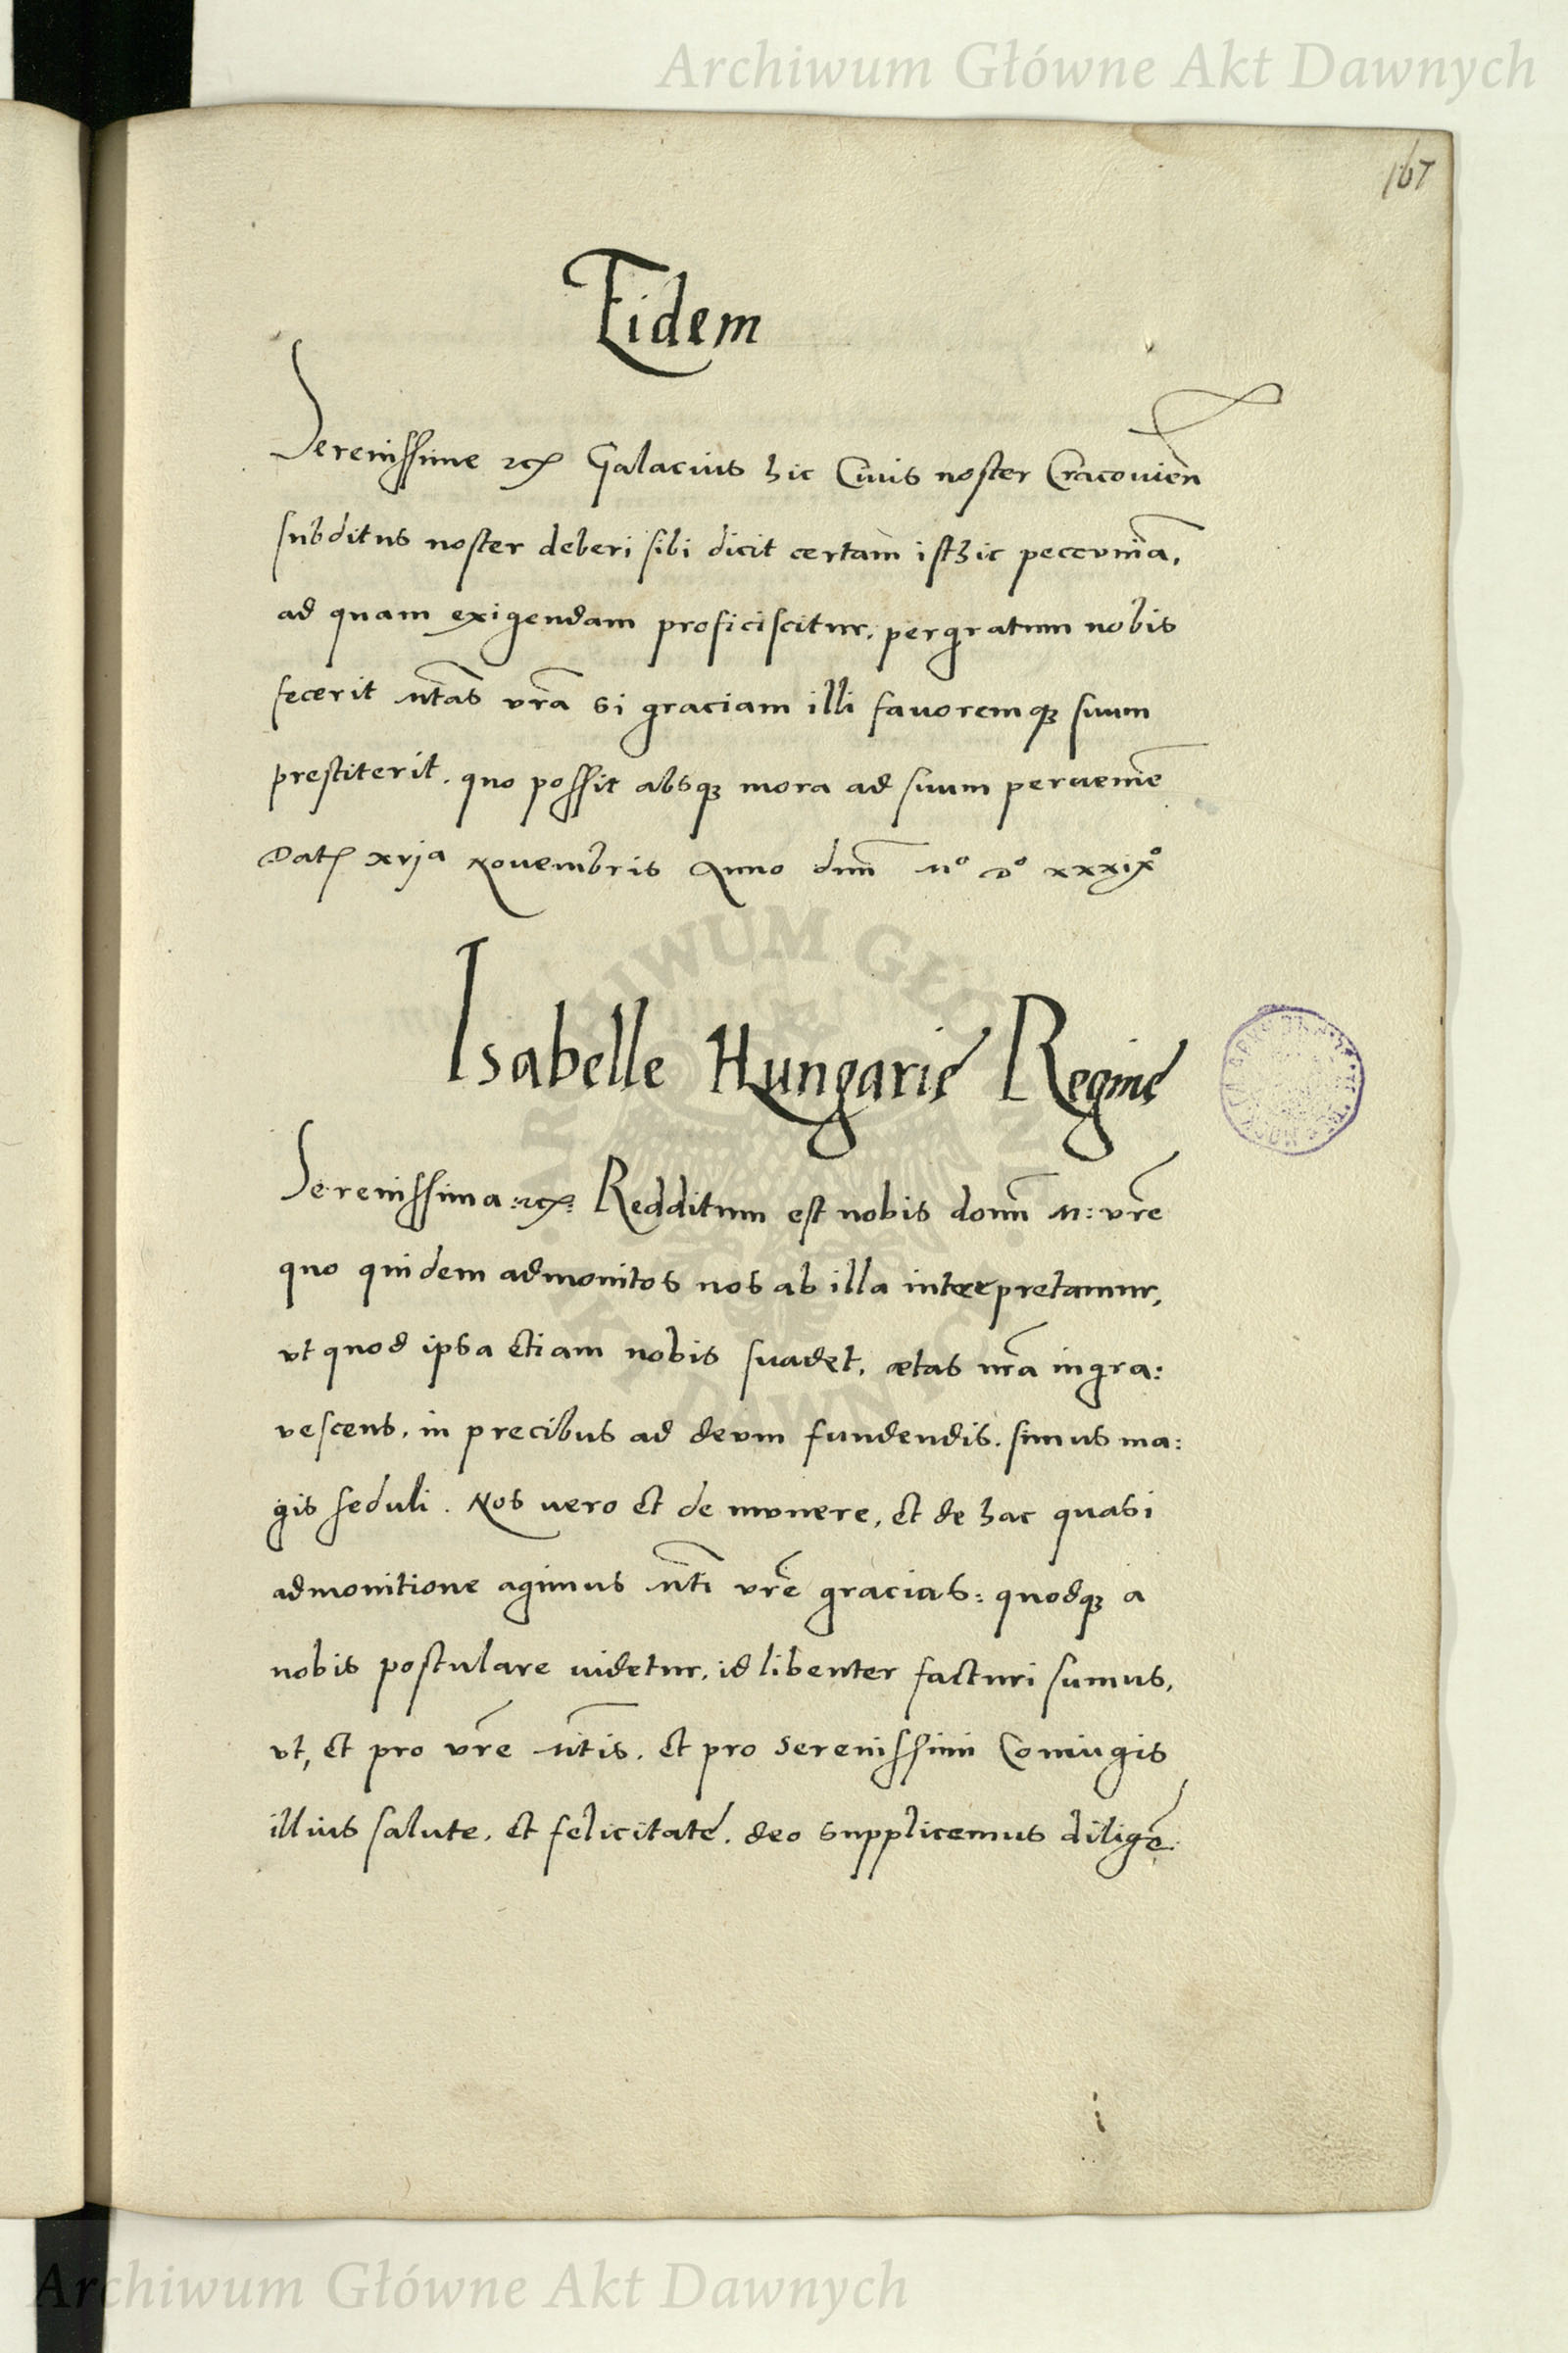 Archiwum Główne Akt Dawnych
167
Eidem
Serenissime etc Galacius hic Civis noster Cracovien̄
subditus noster deberi sibi dicit certam isthic peccuniā,
ad quam exigendam proficiscitur, pergratum nobis
fecerit Mtās vrā si graciam illi favoremqꝫ suum
prestiterit. quo possit absqꝫ mora ad suum pervenīe
Datꝭ xvja Novembris Anno dnī Mº Dº xxxixº
Isabelle Hungarię Reginę
Serenissima: etc: Redditum est nobis donū M: vrē
quo quidem admonitos nos ab illa interpretamur,
vt quod ipsa etiam nobis suadet, ætas nrā ingra:
vescens, in precibus ad deum fundendis. simus ma:
gis seduli. Nos uero et de munere, et de hac quasi
admonitione agimus Mtī vrē gracias: quodqꝫ a
nobis postulare uidetur, id libenter facturi sumus,
vt, et pro vrē Mtīs, et pro Serenissimi Coniugis
illius salute, et felicitatē. deo supplicemus diligē.
Archiwum Główne Akt Dawnych